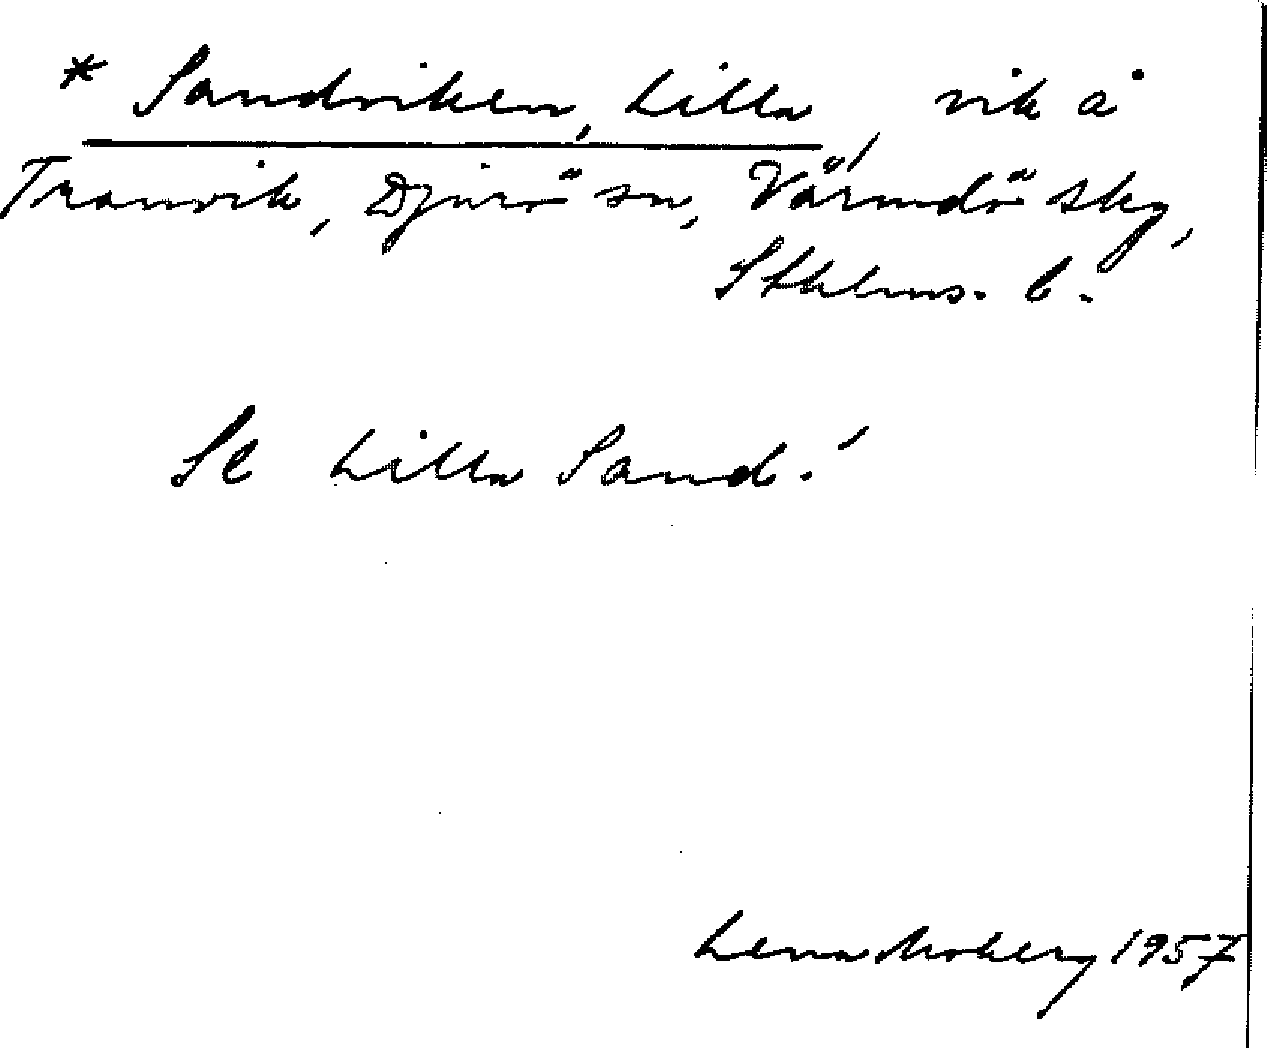 * Sandviken, Lilla, vik å
Tranvik, Djurö sn, Värmdö skg,
Sthlms. l.
Se Lilla Sand.
Lena Moberg 1957